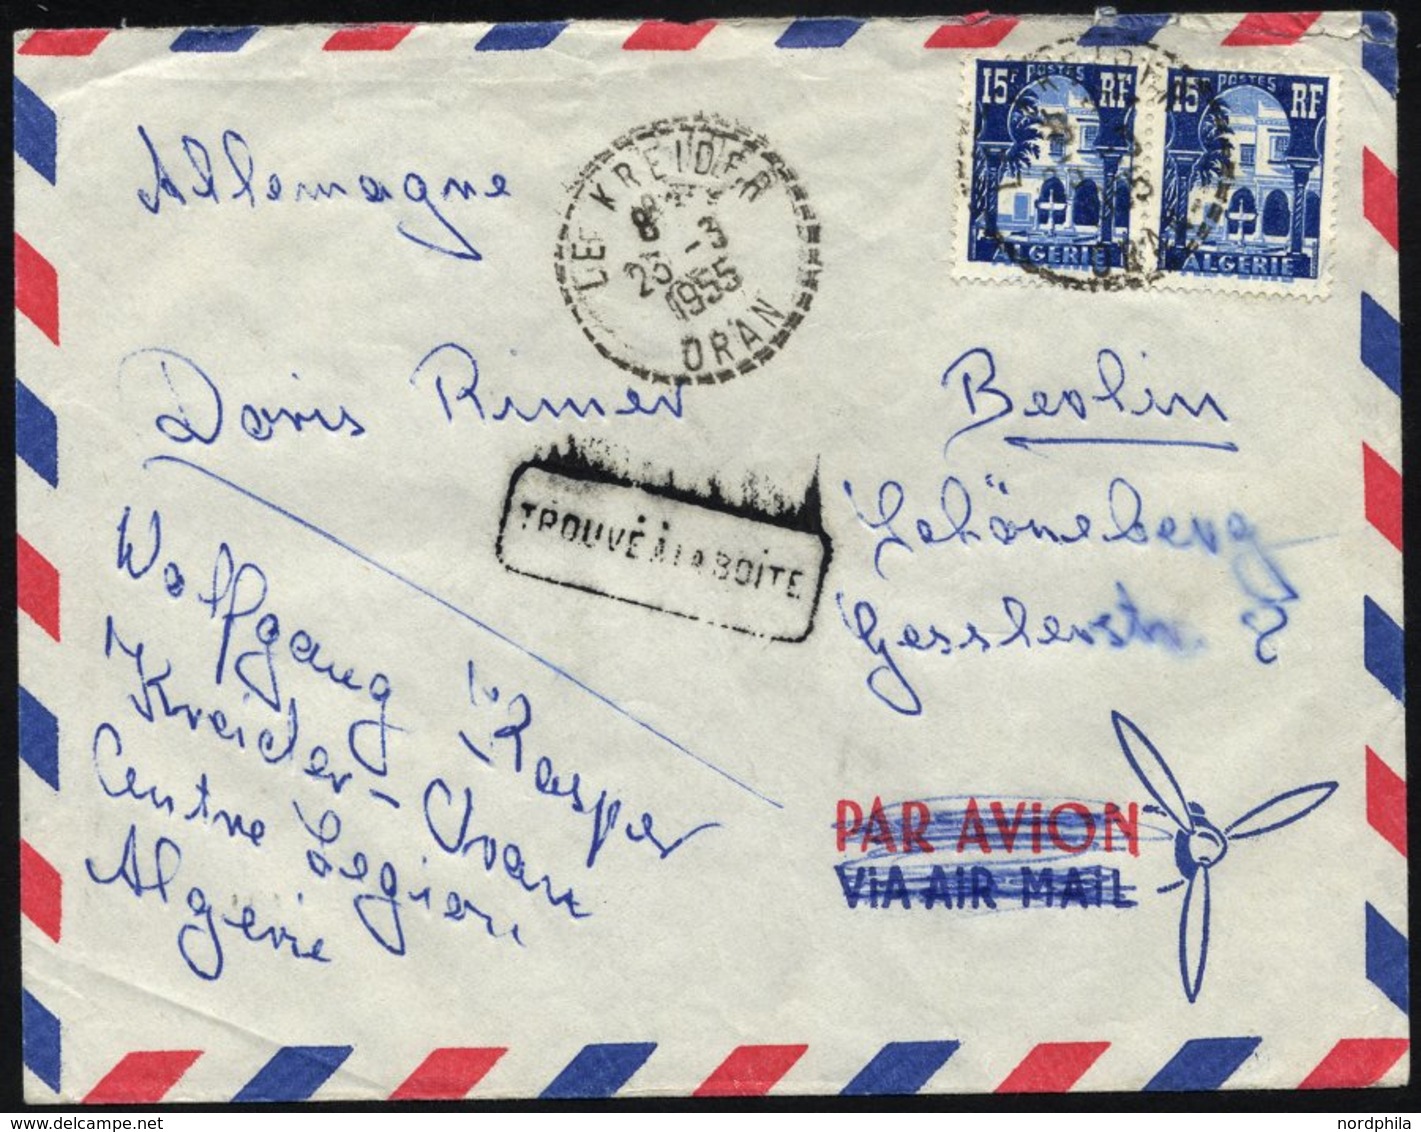 15F POSTES RF
ALGERIE
15F POSTES RF
ALGERIE
LE KREIDER
8H
23 -3
1955
ORAN
Allemagne
Doris Rimer
Berlin
Schöneberg
Gesslerstr. 2
TROUVÉ À LA BOÎTE
Wolfgang Kasper
Kreider-Oran
Centre Legion
Algerie
PAR AVION
VIA AIR MAIL
nordphila